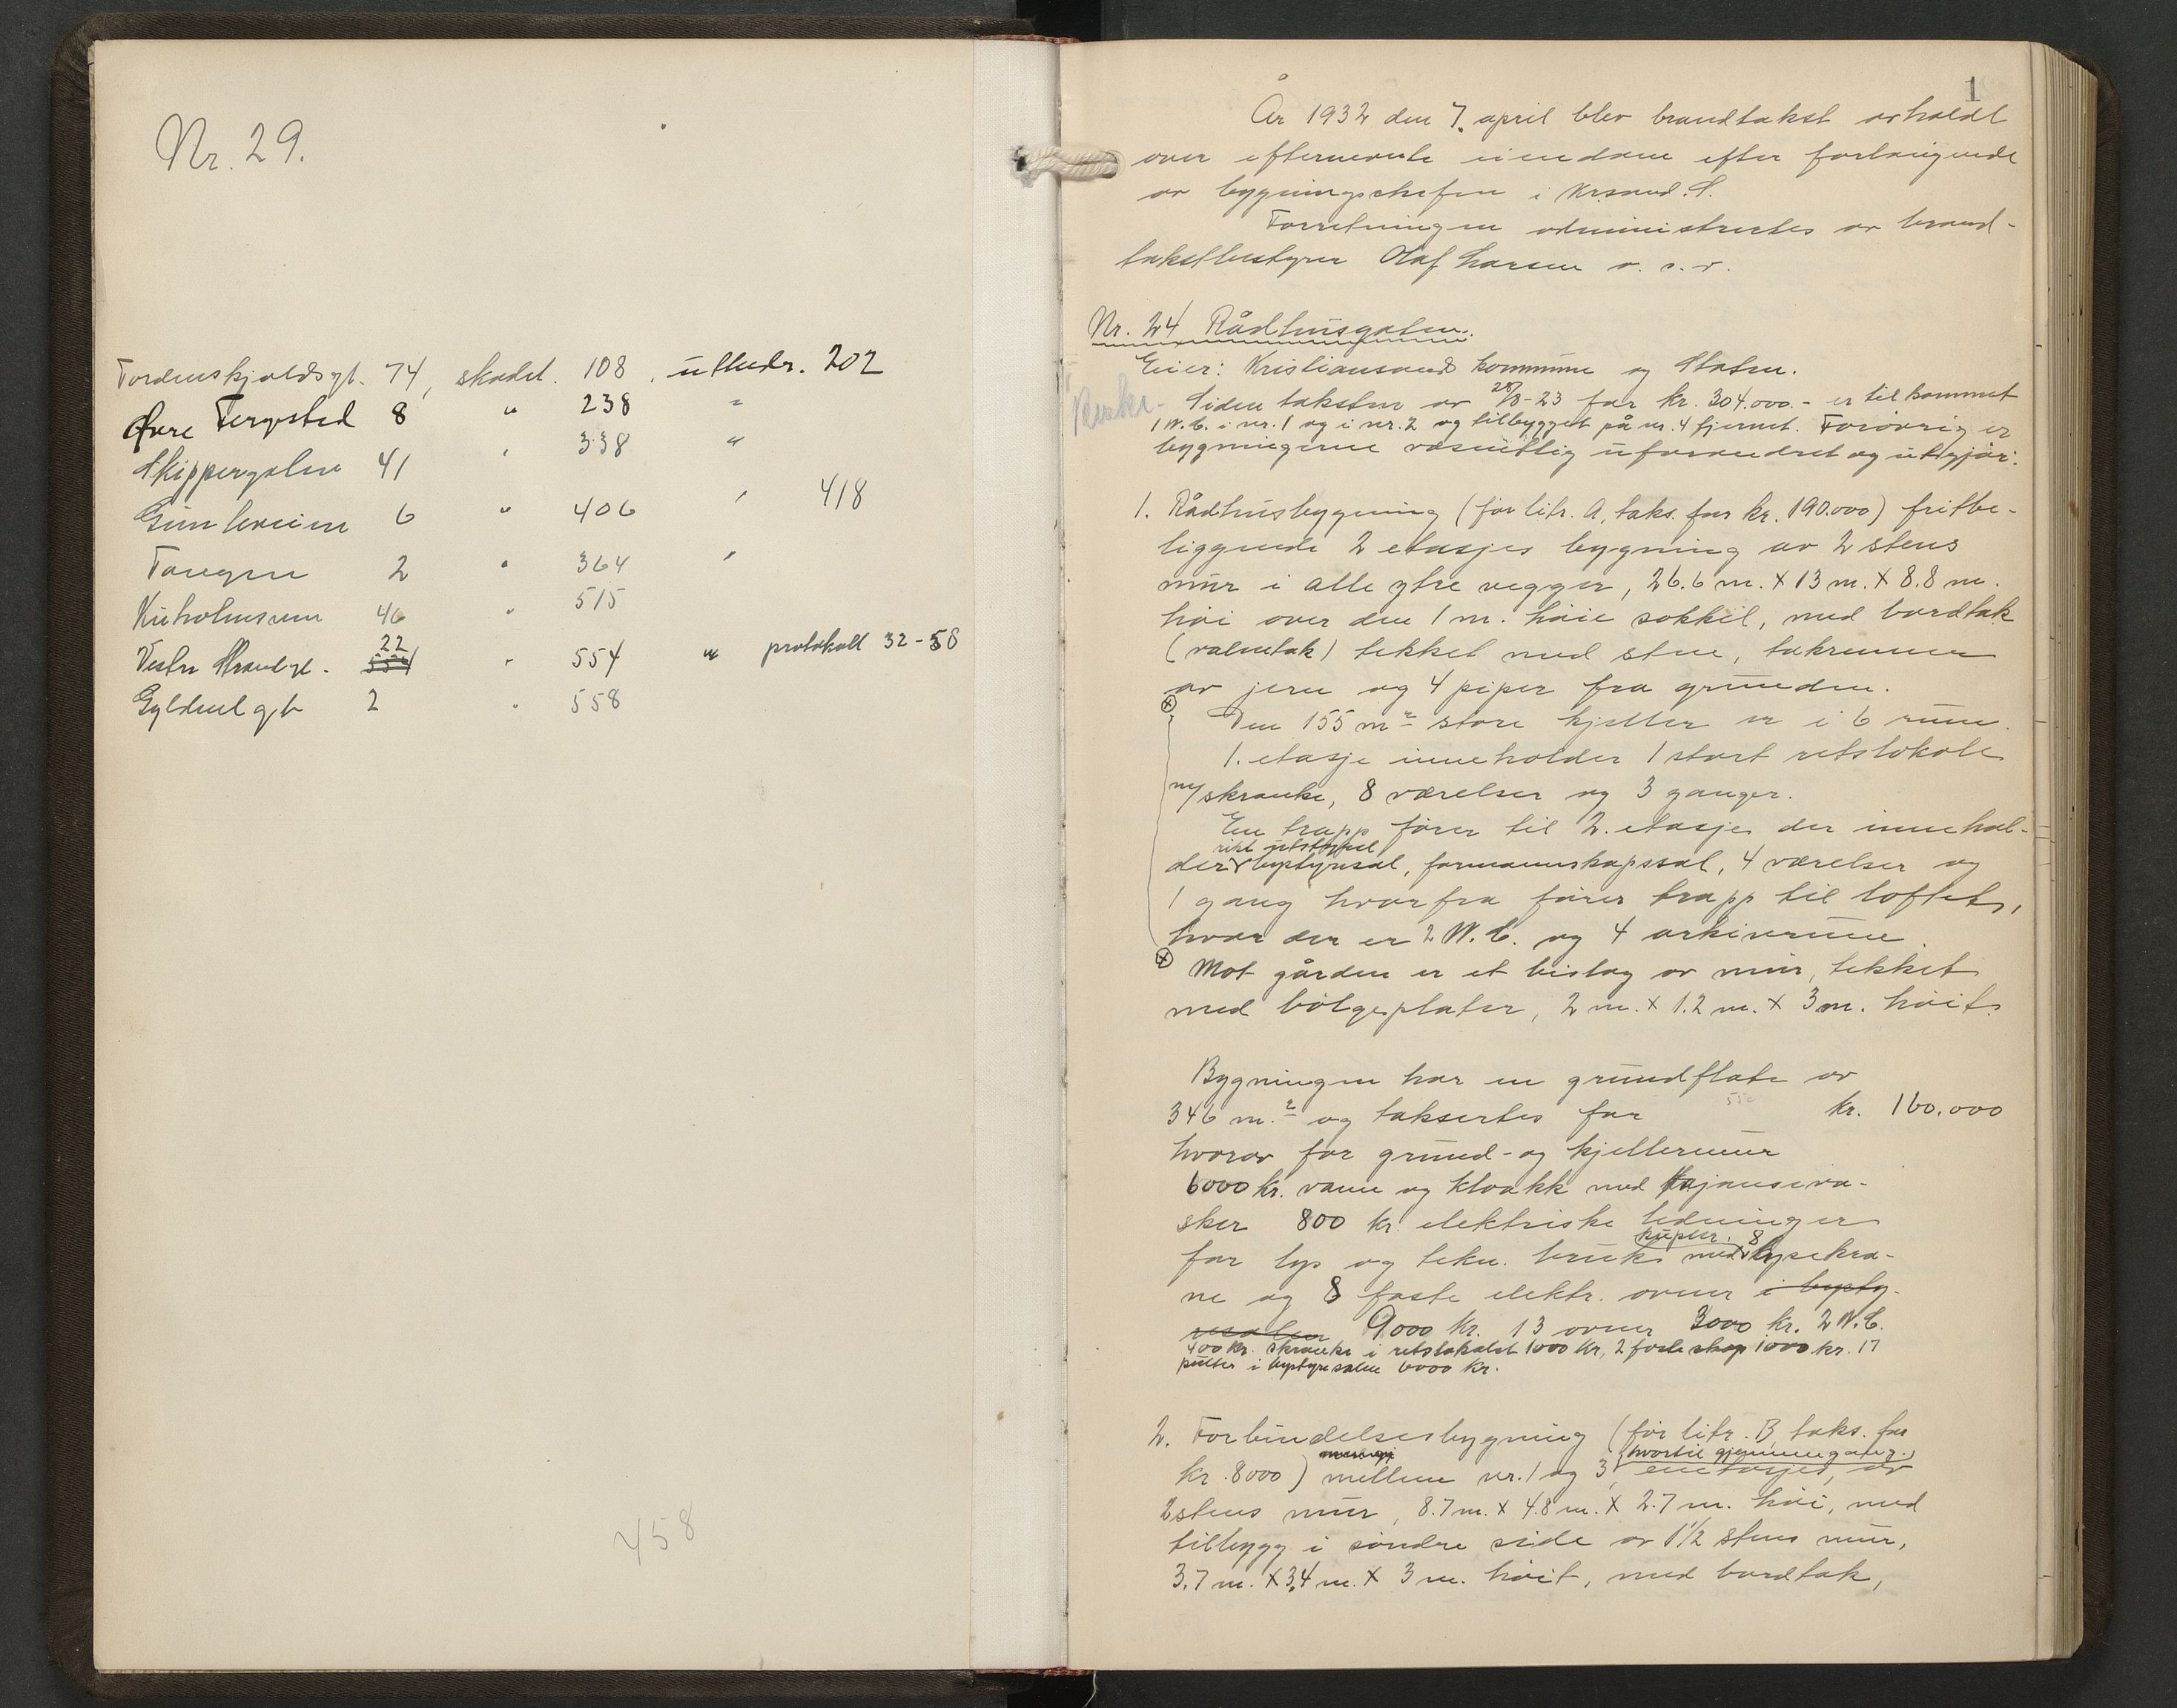 Nr. 29.
Tordenskjoldsgt. 74, skadet. 108, utbedr. 202
Øvre Tergsted 8 " 238 "
Skippergaten 41 " 338 "
Gimleveien 6 " 406 " 418
Tangen 2 " 364 "
Kuholmsveien 46 " 515
Vestre Strandgt. 22 554 " 554 " protokoll 32-58
Gyldenl. gt. 2 " 558
458
1
År 1932 den 7. april blev brandtakst avholdt
over efternevnte eiendom efter forlangende
av bygningschefen i Krsand. S.
Forretningen administrertes av brand-
takstbestyrer Olaf Larsen o. s. v.
Nr. 24 Rådhusgaten.
Eier: Kristiansands kommune og Staten.
Siden taksten av 28/8-23 for kr. 304.000.- er tilkommet
1 W.C. i nr. 1 og i nr. 2 og tilbygget på nr. 4 fjernet. Forøvrig er
bygningerne væsentlig uforandret og utgjør:
1. Rådhusbygning (før litr. A, taks. for kr. 190.000) fritbe-
liggende 2 etasjes bygning av 2 stens
mur i alle ytre vegger, 26.6 m. x 13 m. x 8.8 m.
høi over den 1 m. høie sokkel, med bordtak
(valmtak) tekket med sten, takrenner
av jern og 4 piper fra grunden.
Den 155 m² store kjeller er i 6 rum.
1. etasje inneholder 1 stort retslokale
m/skranke, 8 værelser og 3 ganger.
En trapp fører til 2. etasje der innehol-
rikt utstyrt
der bystyresal, formannskapssal, 4 værelser og
1 gang hvorfra fører trapp til loftet,
hvor der er 2 W.C. og 4 arkivrum.
Mot gården er et bislag av mur, tekket
med bølgeplater, 2 m. x 1.2 m. x 3 m. høit.
Bygningen har en grundflate av
346 m.² og taksertes for kr. 160.000
hvorav for grund- og kjellermur
6000 kr. vann og kloakk med fajansevas-
sker 800 kr. elektriske ledninger
kupler. 8
for lys og tekn. bruk med lysekro-
ne og 8 faste elektr. ovner i bysty-
resalen 9000 kr. 13 ovner 3000 kr. 2 W.C.
400 kr. skranke i retslokalet 1000 kr, 2 faste skap 1000 kr. 17
pulter i bystyresalen 6000 kr.
2. Forbindelsesbygning (før litr. B, taks. for
hvortil gjennemgang.)
kr. 8000) mellem nr. 1 og 3, enetasjes, av
2 stens mur, 8.7 m. x 4.8 m. x 2.7 m. høi, med
tilbygg i søndre side av 1 1/2 stens mur,
3.7 m. x 3.4 m. x 3 m. høit, med bordtak,